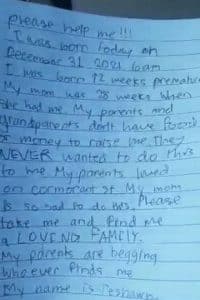 please help me!!!
I was born today on
December 31 2021 6am
I was born 12 weeks premature
My mom was 28 weeks when
she had me My parents and
grandparents dont have food
or money to raise me They
NEVER wanted to do this
to me My parents lived
on cormorant st My mom
is so sad to do this. Please
take me and find me
a LOVEING FAMILY.
My parents are begging
whoever finds me
My name is Teshawn